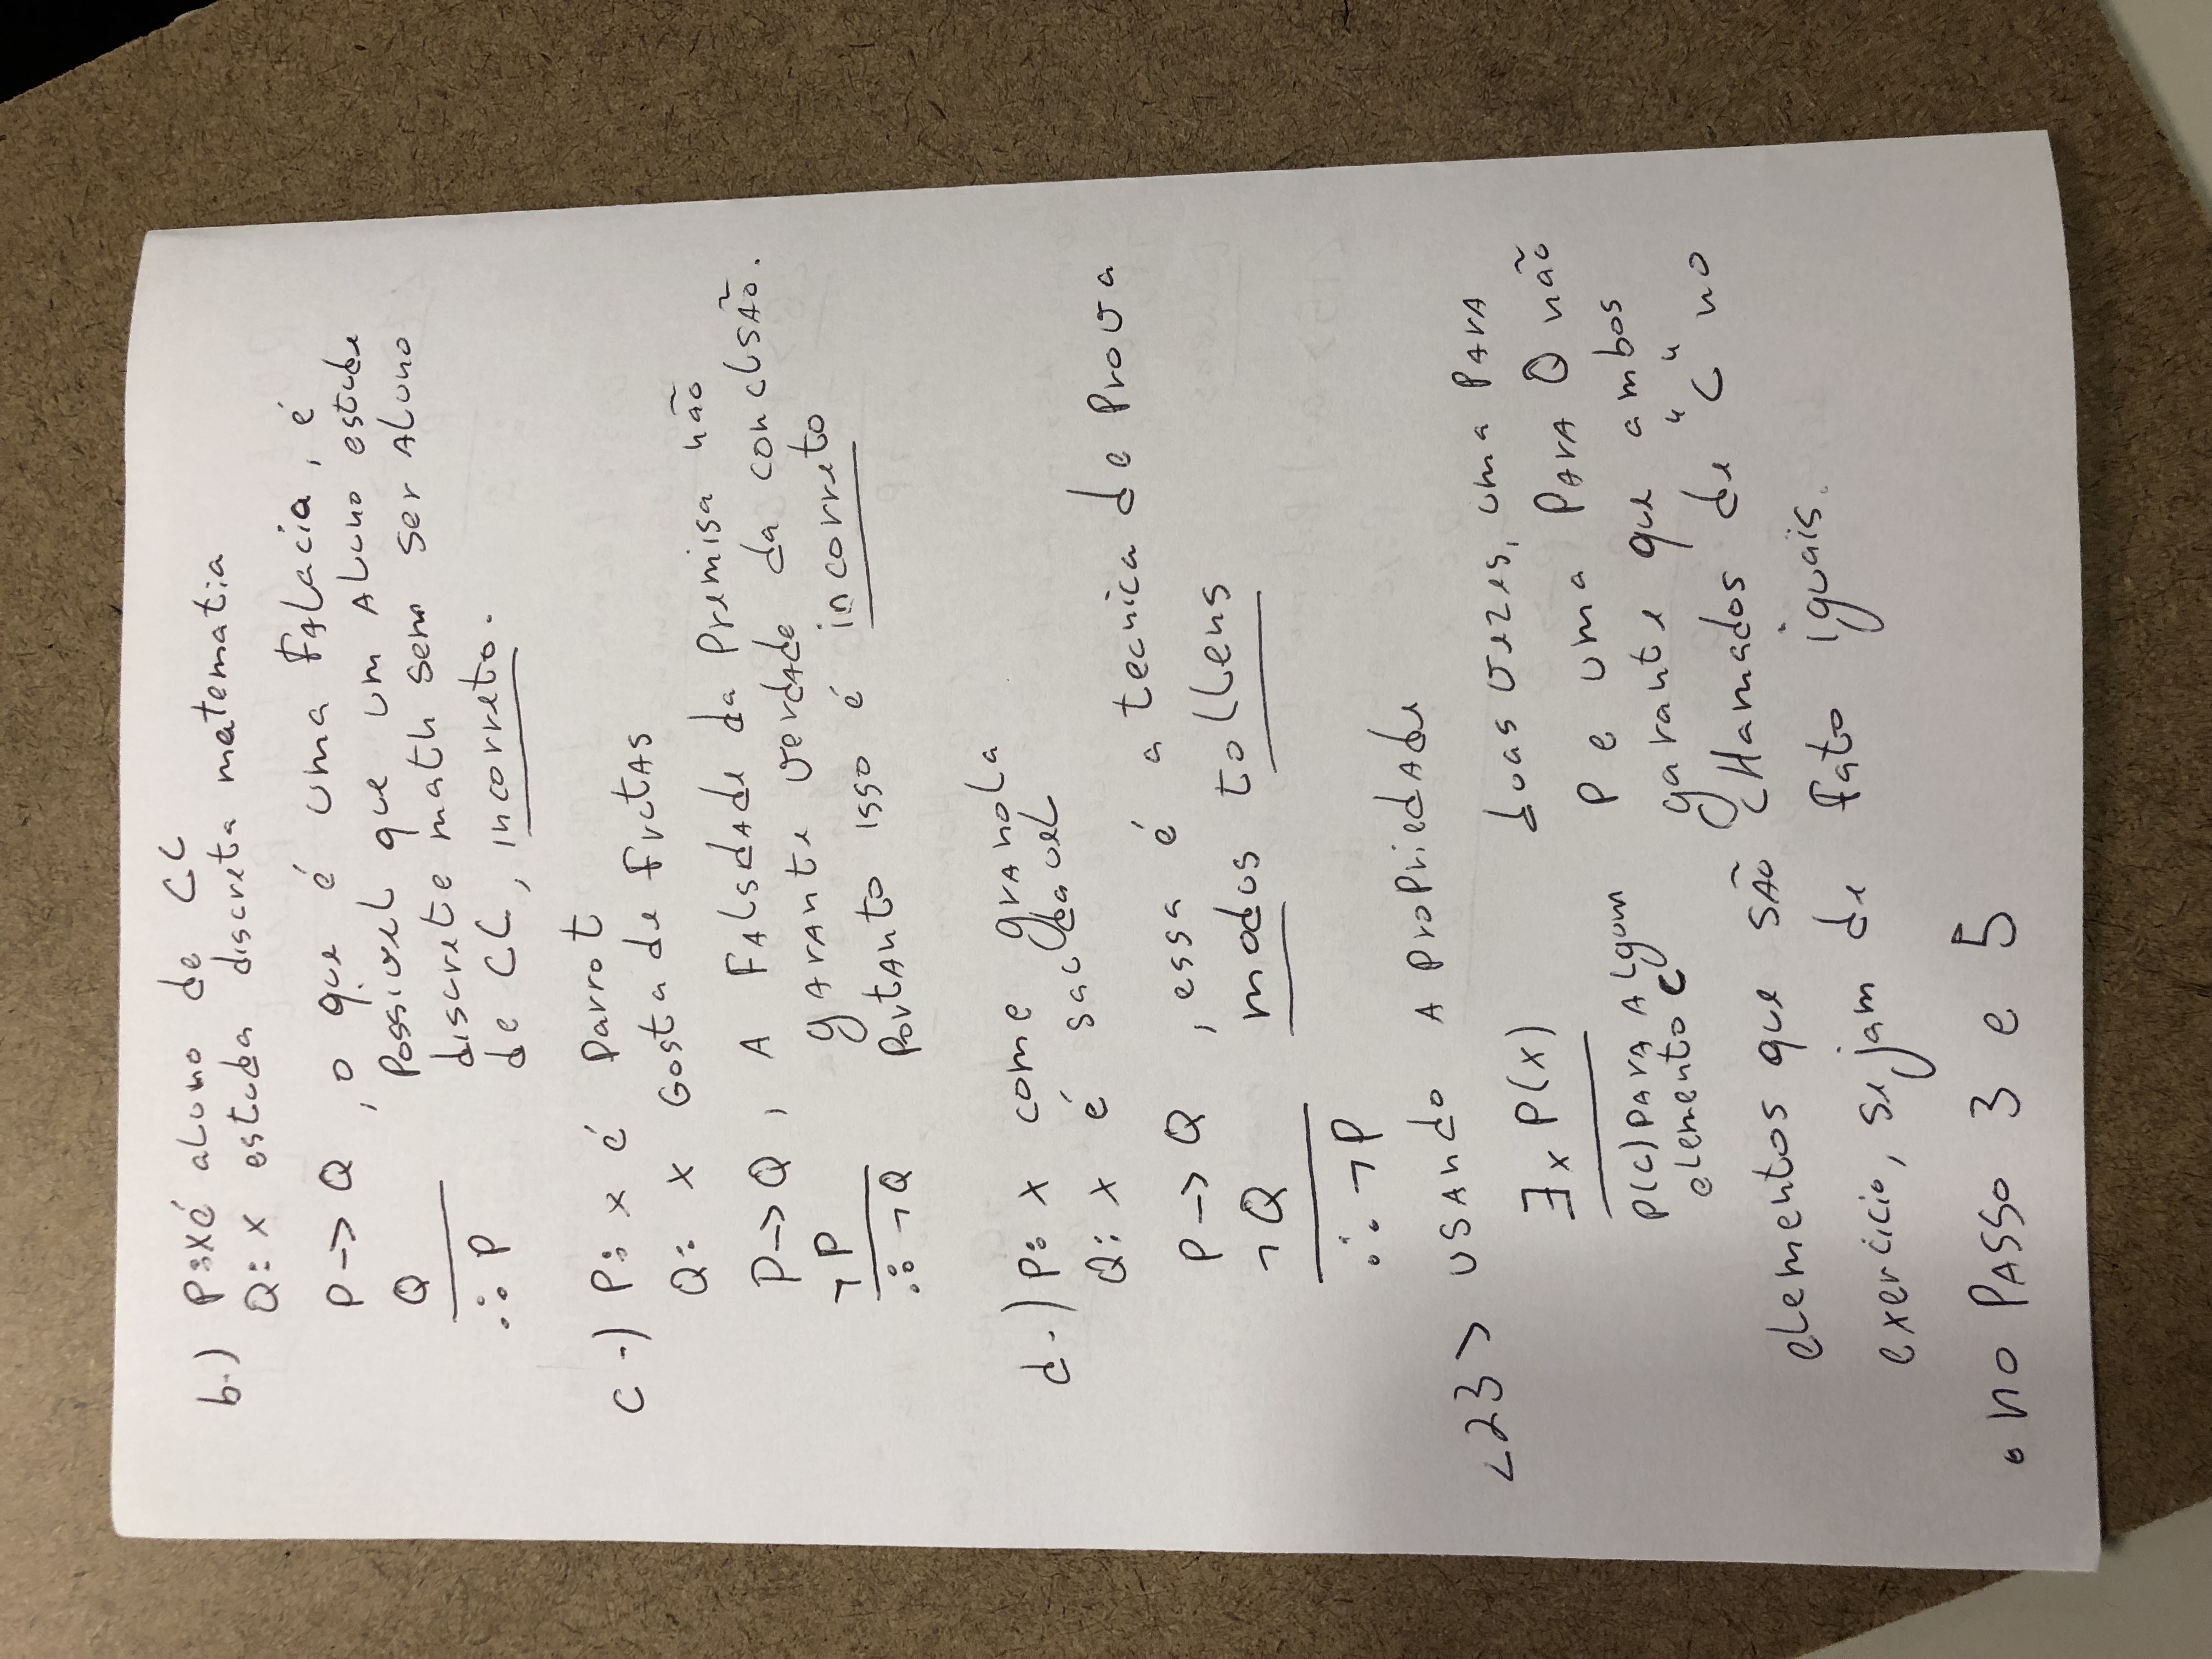 b.) P: x é aluno de CC
Q: x estuda discreta matematia
P -> Q , o que é uma Falacia, é
Q Possivel que um Aluno estude
discrete math sem ser Aluno
∴ P de CC, incorreto.
c-) P: x é Parrot
Q: x Gosta de FrutAs
P -> Q , A FAlsdAde da Premisa não
¬P gArAnte verdAde da conclusÃo.
∴ ¬Q PortAnto isso é incorreto
d-) P: x come grAnola
Q: x é saudavel
P -> Q , essa é a tecnica de Prova
¬Q modus tollens
∴ ¬P
<23> USAndo A ProPriedAde
∃x P(x) duas vezes, uma PArA
P(c) PArA Algum P e uma PArA Q não
elemento c garante que ambos
elementos que sÃo cHamados de "c" no
exercicio, sejam de Fato iguais.
• no PAsso 3 e 5